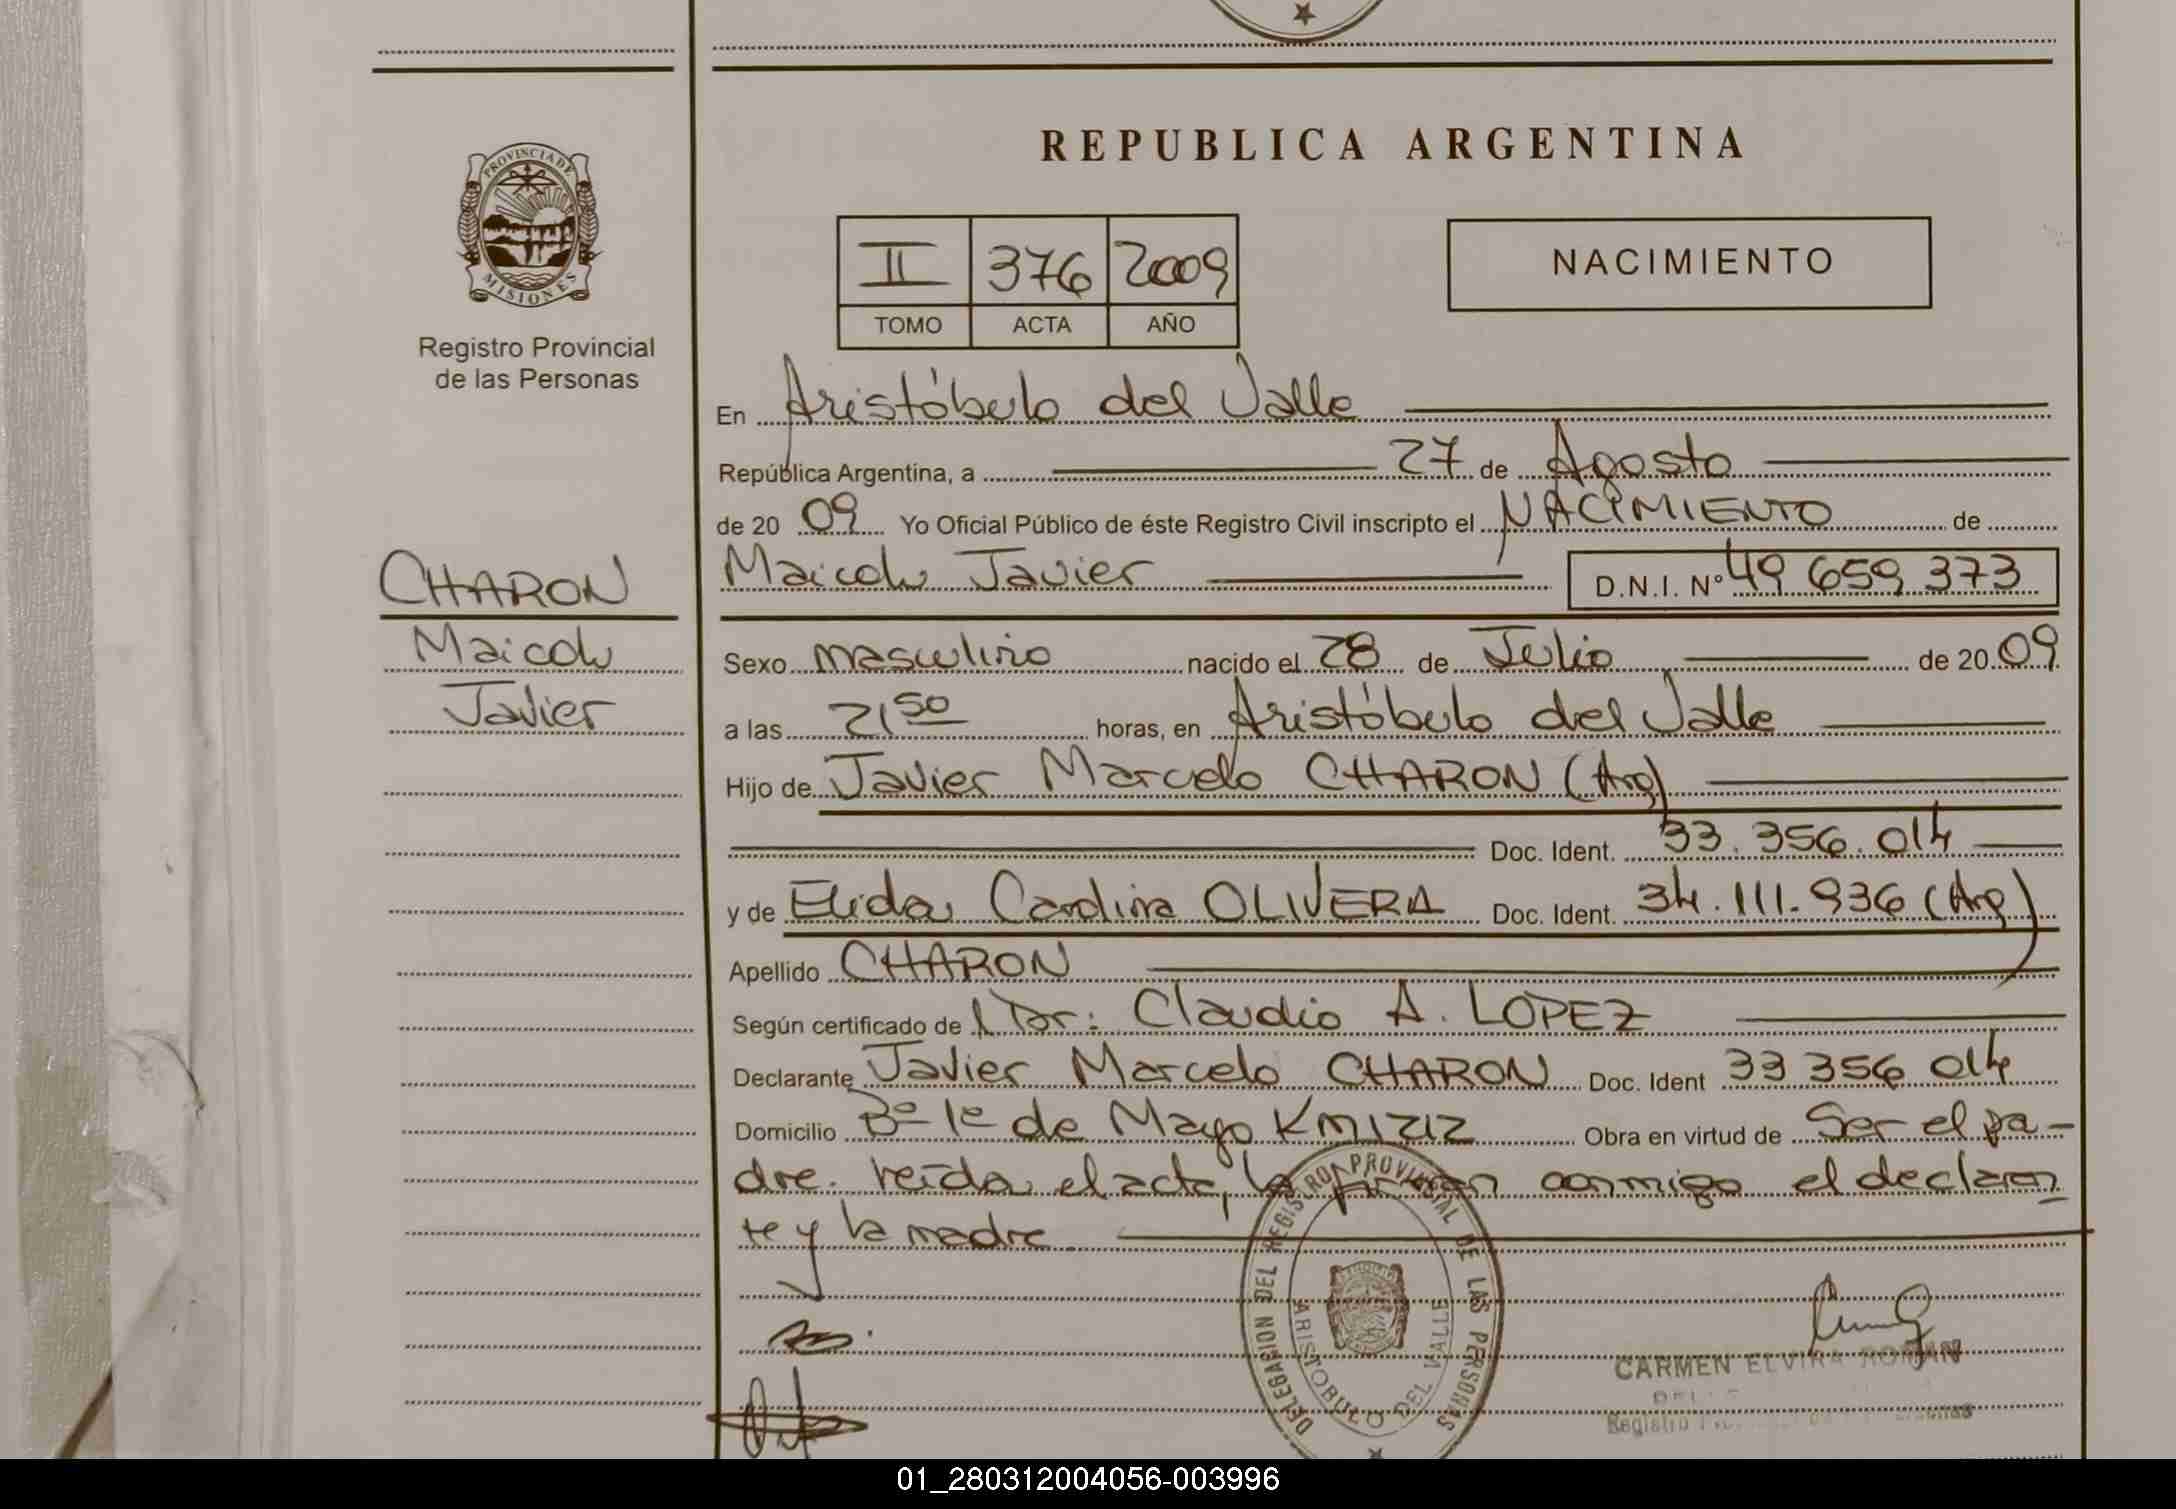 REPUBLICA ARGENTINA
PROVINCIA DE
MISIONES
Registro Provincial
de las Personas
II 376 2009
TOMO ACTA AÑO
NACIMIENTO
En Aristóbulo del Valle
República Argentina, a 27 de Agosto
de 20 09 Yo Oficial Público de éste Registro Civil inscripto el NACIMIENTO de
Maicol Javier D.N.I. Nº 49 659 373
CHARON
Maicol
Javier
Sexo masculino nacido el 28 de Julio de 20 09
a las 21 50 horas, en Aristóbulo del Valle
Hijo de Javier Marcelo CHARON (Arg)
Doc. Ident. 33.356.014
y de Elida Carolina OLIVERA Doc. Ident. 34.111.936 (Arg)
Apellido CHARON
Según certificado de Dr: Claudio A. LOPEZ
Declarante Javier Marcelo CHARON Doc. Ident 33 356 014
Domicilio Bº 1º de Mayo Km 1212 Obra en virtud de Ser el pa-
dre. leída el acta, la firman conmigo el declaran
te y la madre
DELEGACION DEL REGISTRO PROVINCIAL DE LAS PERSONAS
ARISTOBULO DEL VALLE
CARMEN ELVIRA ROMAN
Registro
01_280312004056-003996